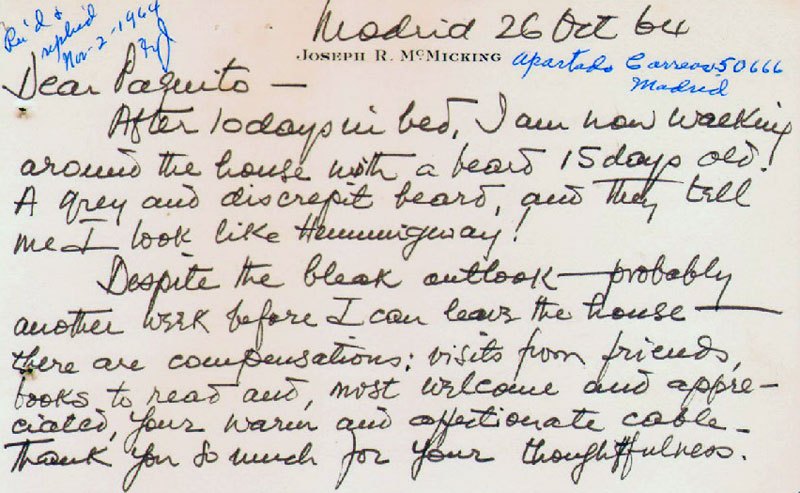 Rec'd &
replied
Nov-2-1964
Madrid 26 Oct 64
JOSEPH R. McMICKING
Apartado Correos 50666
Madrid
Dear Paquito —
After 10 days in bed, I am now walking
around the house with a beard 15 days old!
A grey and discrepit beard, and they tell
me I look like Hemmingway!
Despite the bleak outlook — probably
another week before I can leave the house —
there are compensations: visits from friends,
books to read and, most welcome and appre-
ciated, your warm and affectionate cable —
Thank you so much for your thoughtfulness.